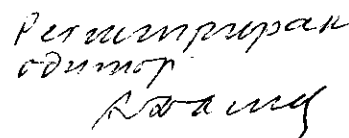 Регистриран
одитор